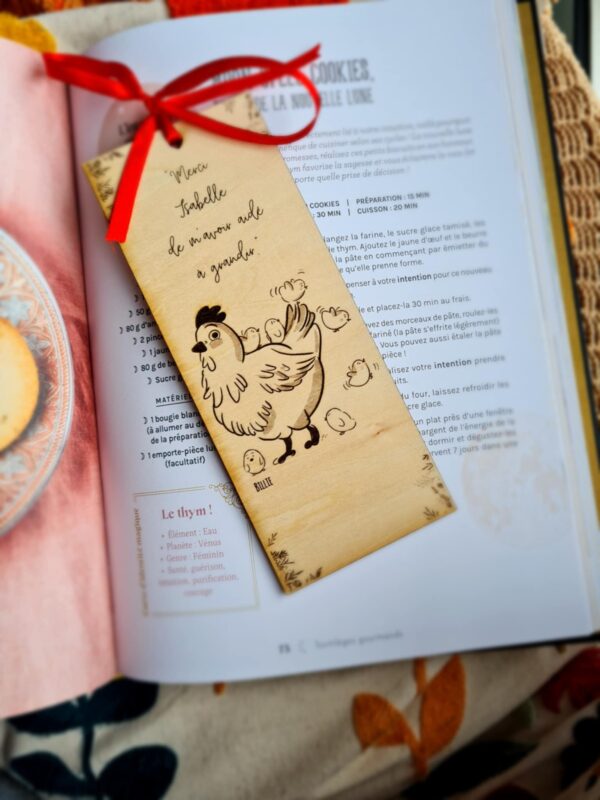 "Merci
Isabelle
de m'avoir aidé
à grandir."
BILLIE
COOKIES,
DE LA NOUVELLE LUNE
COOKIES | PRÉPARATION : 15 MIN
: 30 MIN | CUISSON : 20 MIN
la farine, le sucre glace tamisé, les
de thym. Ajoutez le jaune d'œuf et le beurre
la pâte en commençant par émietter du
qu'elle prenne forme.
penser à votre intention pour ce nouveau
et placez-la 30 min au frais.
des morceaux de pâte, roulez-les
fariné (la pâte s'effrite légèrement)
Vous pouvez aussi étaler la pâte
pièce !
votre intention prendre
du four, laissez refroidir les
glace.
un plat près d'une fenêtre
de l'énergie de la
dormir et
7 jours dans une
50 g
80 g d'am
2 pinc
1 jaun
80 g de be
Sucre g
MATÉRIE
1 bougie blan
(à allumer au dé
de la préparation
1 emporte-pièce lu
(facultatif)
Le thym !
• Élément : Eau
• Planète : Vénus
• Genre : Féminin
• Santé, guérison,
purification,
courage
75
Sortilèges gourmands